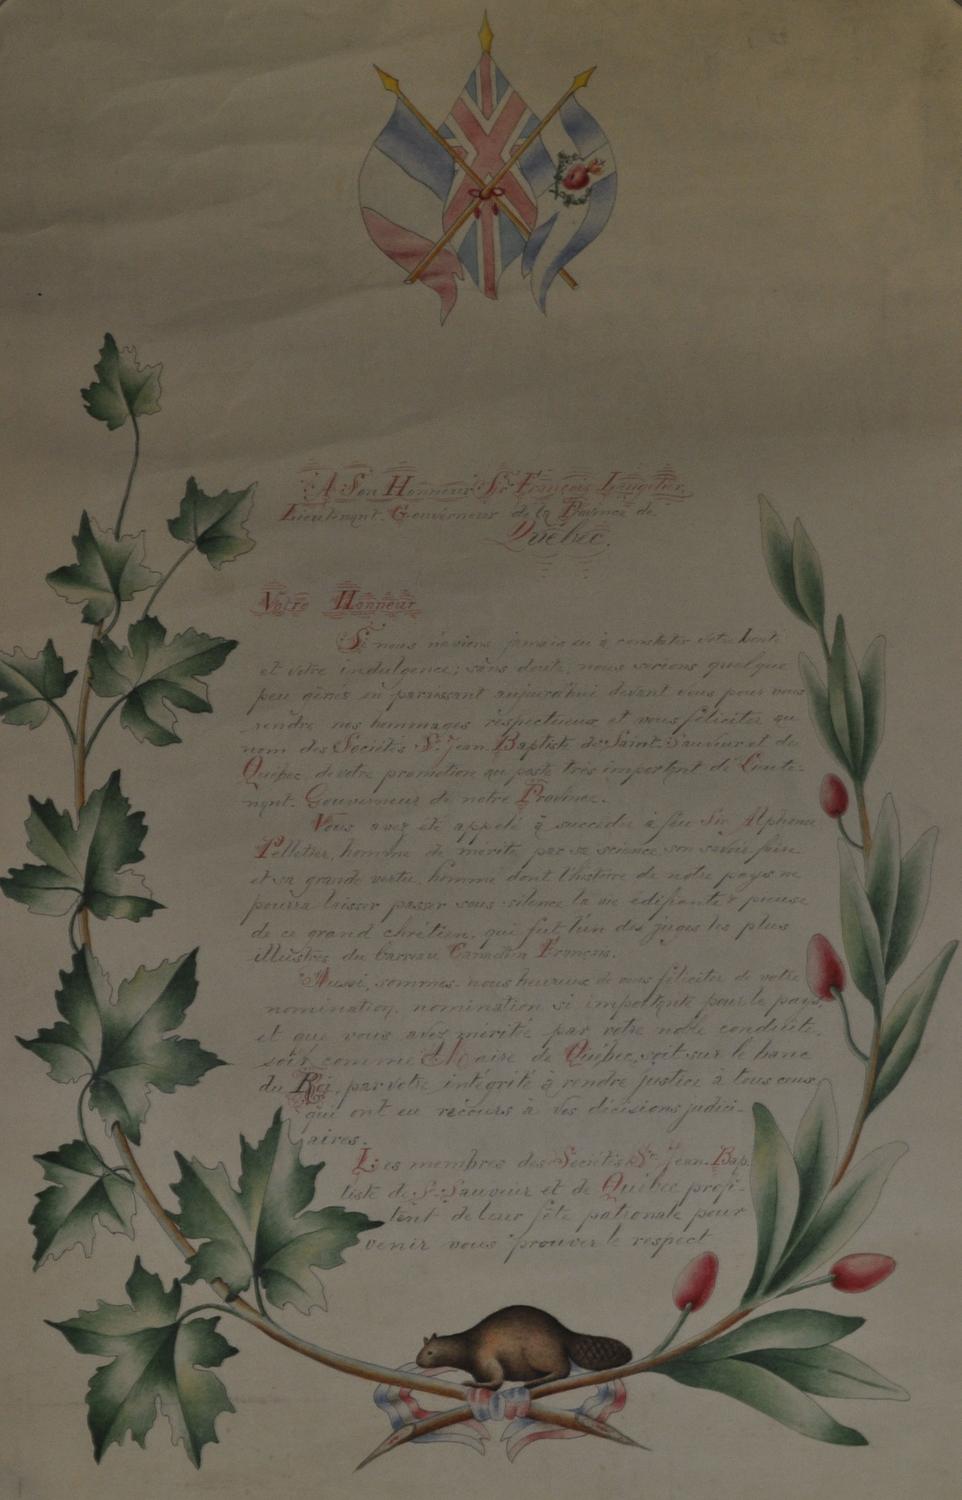 A Son Honneur Sir François Langelier,
Lieutenant-Gouverneur de la Province de
Québec.
Votre Honneur
Si nous n'avions jamais eu à constater votre bonté
et votre indulgence; sans doute, nous serions quelque
peu gênés en paraissant aujourd'hui devant vous pour vous
rendre nos hommages respectueux et vous féliciter au
nom des Sociétés St. Jean-Baptiste de Saint-Sauveur et de
Québec de votre promotion au poste très important de Lieute-
nant-Gouverneur de notre Province.
Vous avez été appelé à succéder à feu Sir Alphonse
Pelletier, homme de mérite par sa science, son savoir faire
et sa grande vertu, homme dont l'histoire de notre pays ne
pourra laisser passer sous silence la vie édifiante & pieuse
de ce grand chrétien, qui fut l'un des juges les plus
illustres du barreau Canadien Français.
Aussi, sommes-nous heureux de vous féliciter de votre
nomination, nomination si importante pour le pays,
et que vous avez mérité par votre noble conduite,
soit comme Maire de Québec, soit sur le banc
du Roi, par votre intégrité à rendre justice à tous ceux
qui ont eu recours à vos décisions judici-
aires.
Les membres des Sociétés St. Jean-Bap-
tiste de St-Sauveur et de Québec profi-
tent de leur fête patronale pour
venir vous prouver le respect